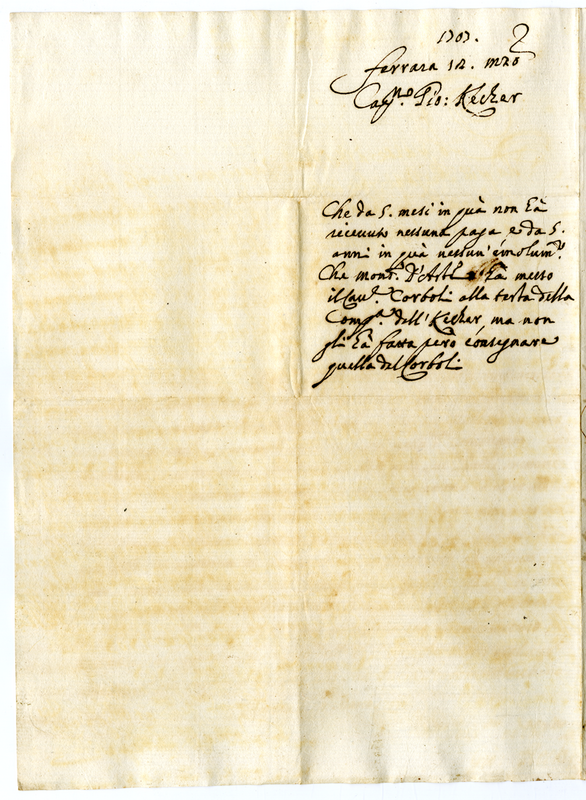 1707. 2
Ferrara 12. mzo
Capno. Gio: Kecher
Che da 5. mesi in quà non hà
riceuuto nessuna paga e da 5.
anni in quà nessun' émolumto.
Che monsr. D'Ast hà messo
il Caur. Corboli alla testa della
Compa. dell' Kecher, ma non
gli hà fatta però cónsegnare
quella del Corboli